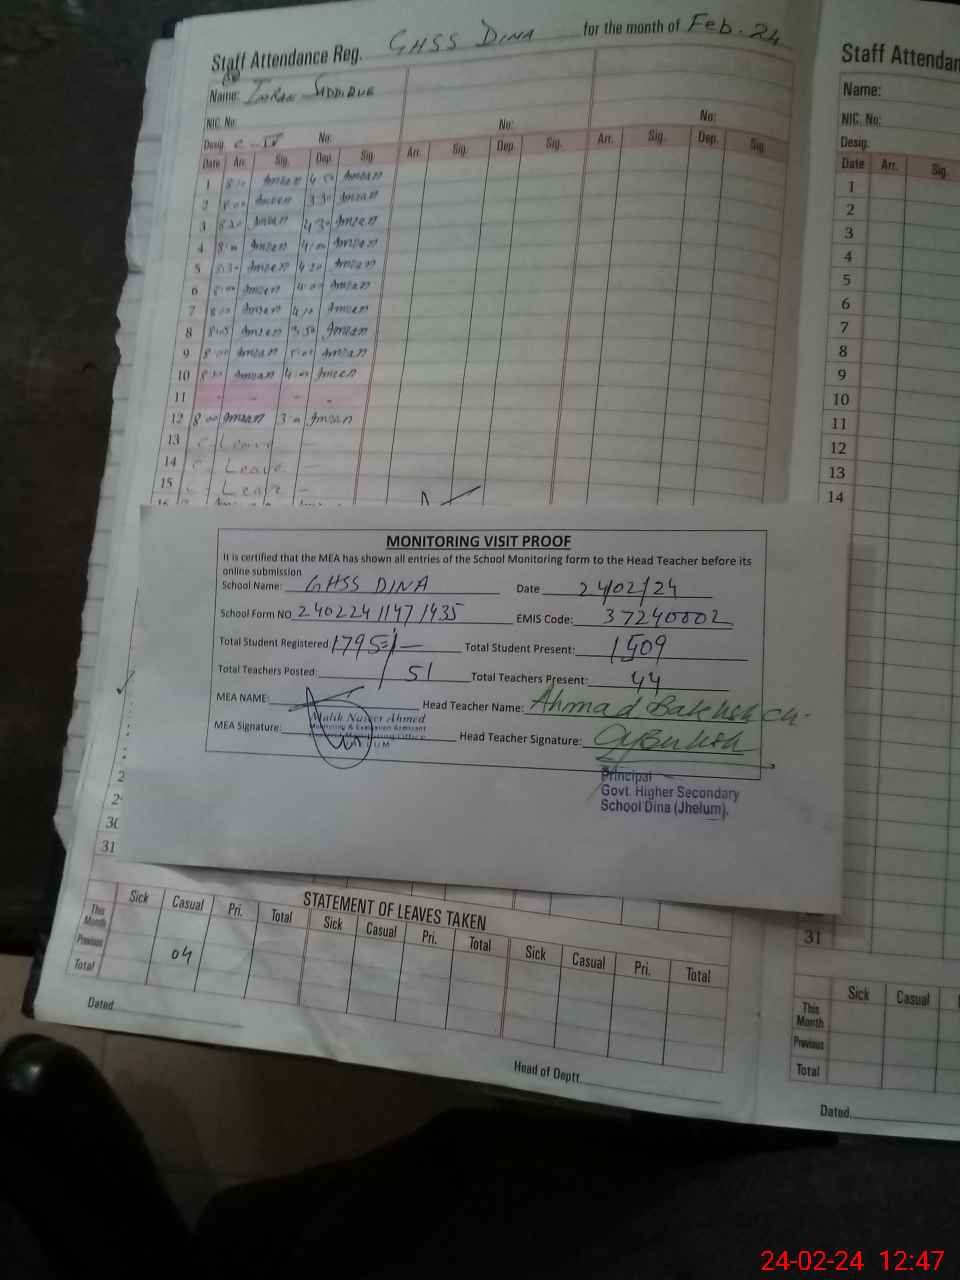 Staff Attendance Reg. GHSS DINA for the month of Feb. 24
Name: IMRAN SADDIQUE
NIC. No:
Desig. C-IV No: No: No:
Date Arr. Sig. Dep. Sig. Arr. Sig. Dep. Sig. Arr. Sig. Dep. Sig.
1 8:10 Imran 4:50 Imran
2 8:00 Imran 3:30 Imran
3 8:20 Imran 4:30 Imran
4 8:00 Imran 4:00 Imran
5 8:30 Imran 4:20 Imran
6 8:00 Imran 4:00 Imran
7 8:10 Imran 4:10 Imran
8 8:05 Imran 3:50 Imran
9 8:00 Imran 5:00 Imran
10 8:30 Imran 4:00 Imran
11 - - - -
12 8:00 Imran 3:00 Imran
13 C- Leave -
14 C- Leave -
15 C- Leave -
MONITORING VISIT PROOF
It is certified that the MEA has shown all entries of the School Monitoring form to the Head Teacher before its
online submission
School Name: GHSS DINA Date 24/02/24
School Form NO 24022411471435 EMIS Code: 37240002
Total Student Registered 1795 Total Student Present: 1509
Total Teachers Posted: 51 Total Teachers Present: 44
MEA NAME: Head Teacher Name: Ahmad Bakhsh ch.
Malik Naseer Ahmed
Monitoring & Evaluation Assistant
MEA Signature: Head Teacher Signature:
Principal
Govt. Higher Secondary
School Dina (Jhelum).
30
31
STATEMENT OF LEAVES TAKEN
Sick Casual Pri. Total Sick Casual Pri. Total Sick Casual Pri. Total
This Month
Previous 04
Total
Dated.
Head of Deptt.
Staff Attendan
Name:
NIC. No:
Desig.
Date Arr. Sig.
1
2
3
4
5
6
7
8
9
10
11
12
13
14
31
Sick Casual
This Month
Previous
Total
Dated.
24-02-24 12:47